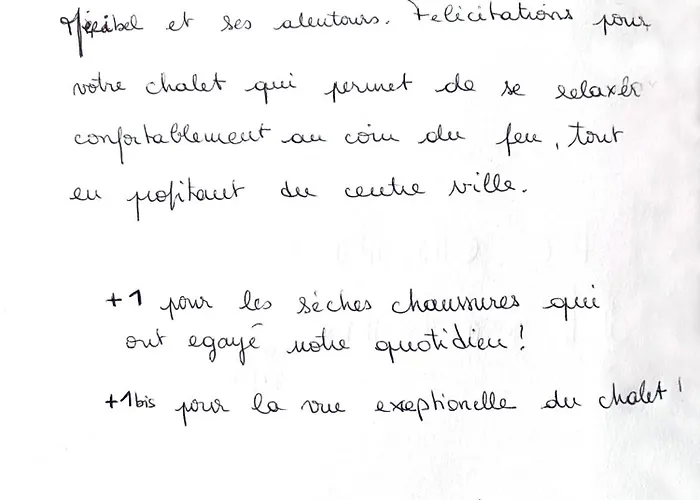 Méribel et ses alentours. Felicitations pour
votre chalet qui permet de se relaxer
confortablement au coin du feu, tout
en profitant du centre ville.
+1 pour les sèches chaussures qui
ont egayé notre quotidien !
+1bis pour la vue exeptionelle du chalet !